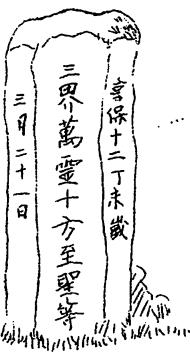 享保十二丁未歳
三界萬靈十方至聖等
三月二十一日